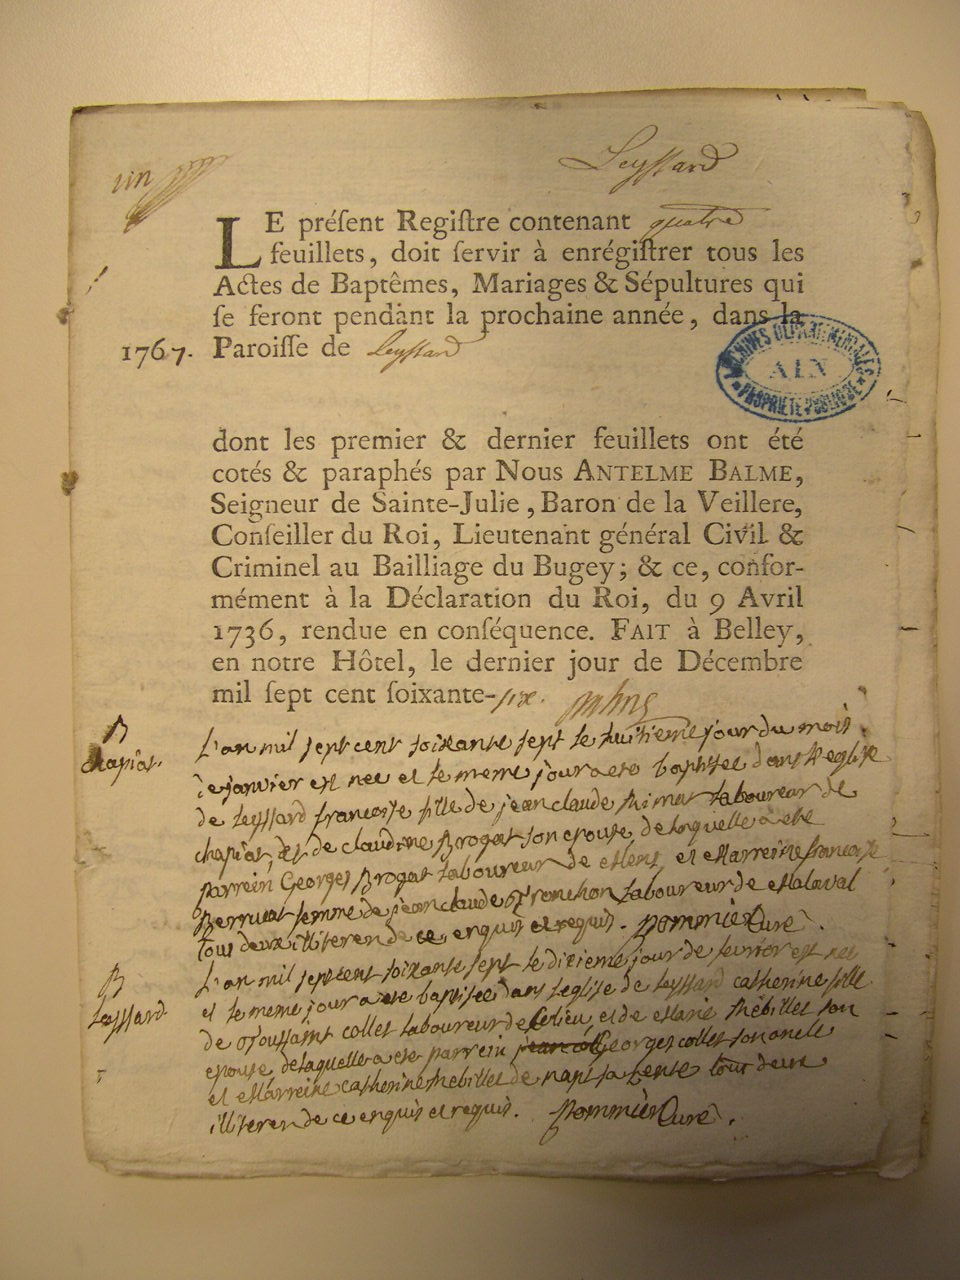 un
Leyssard
LE préſent Regiſtre contenant quatre
feuillets, doit ſervir à enrégiſtrer tous les
Actes de Baptêmes, Mariages & Sépultures qui
ſe feront pendant la prochaine année, dans la
1767. Paroiſſe de Leyssard
ARCHIVES DEPARTEMENTALES
AIN
PROPRIETE PUBLIQUE
dont les premier & dernier feuillets ont été
cotés & paraphés par Nous ANTELME BALME,
Seigneur de Sainte-Julie, Baron de la Veillere,
Conſeiller du Roi, Lieutenant général Civil &
Criminel au Bailliage du Bugey; & ce, confor-
mément à la Déclaration du Roi, du 9 Avril
1736, rendue en conſéquence. FAIT à Belley,
en notre Hôtel, le dernier jour de Décembre
mil ſept cent ſoixante-six.
B
chapiat.
L'an mil sept cent soixante sept le huitieme jour du mois
de janvier est nee et le meme jour a ete baptisee dans l'eglise
de leyssard francoise fille de jean claude laboureur de
chapiat, et de claudine Brogat son epouse de laquelle a ete
parrein Georges Brogat laboureur de et Marreine francoise
Perruat femme de jean claude laboureur de Malaval
tous deux illiteren de ce enquis et requis. Pommier Curé.
B
Leyssard
L'an mil sept cent soixante sept le dixieme jour de fevrier est nee
et le meme jour a ete baptisee dans l'eglise de leyssard catherine fille
de Toussaint collet laboureur de ce lieu, et de Marie Thebillet son
epouse de laquelle a ete parrein Georges collet son oncle
et Marreine catherine Thebillet de sa tente tout deux
illiteren de ce enquis et requis. Pommier Curé.